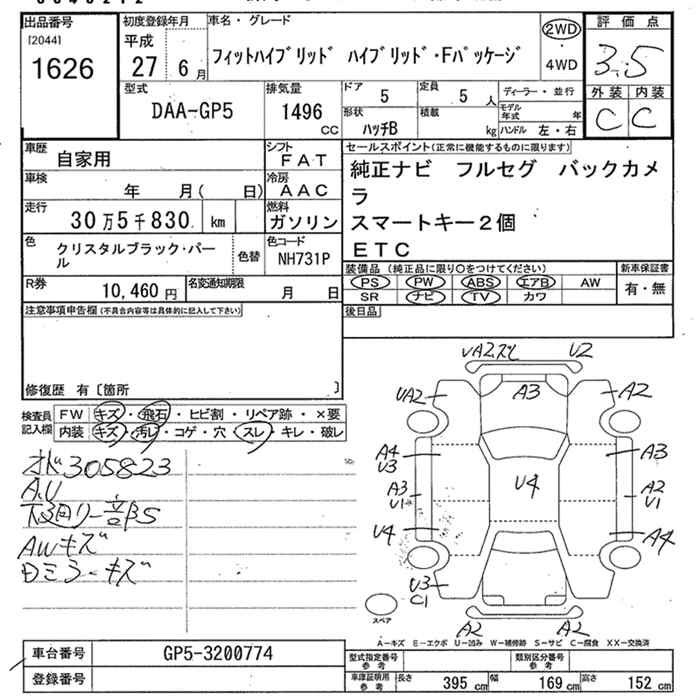 出品番号
[2044]
1626
初度登録年月
平成
27 6月
車名・グレード
フィットハイブリッド ハイブリッド・Fパッケージ
2WD
・4WD
評価点
3.5
外装 内装
C C
型式
DAA-GP5
排気量
1496
CC
ドア 5
定員 5 人
形状
ハッチB
積載
kg
ディーラー・並行
モデル年式 年
ハンドル 左・右
車歴
自家用
シフト
FAT
車検
年 月( 日)
冷房
AAC
走行
30万5千830 km
燃料
ガソリン
色
クリスタルブラック・パール
色替
色コード
NH731P
R券
10,460 円
名変通知期限
月 日
セールスポイント(正常に機能するものに限ります)
純正ナビ フルセグ バックカメ
ラ
スマートキー2個
ETC
装備品(純正品に限り○をつけてください)
PS PW ABS エアB AW
SR ナビ TV カワ
新車保証書
有・無
後日品
注意事項申告欄(不具合内容等は具体的に記入して下さい)
修復歴 有〔箇所 〕
検査員
記入欄
FW キズ・飛石・ヒビ割・リペア跡・×要
内装 キズ・汚レ・コゲ・穴・スレ・キレ・破レ
オド305823
A.U
AWキズ
Dミラーキズ
U2
A3
UA2
A2
A4
U3
A3
A3
U1
U4
A2
U1
U4
A4
U3
C1
A2
A2
スペア
A-キズ E-エクボ U-凹み W-補修跡 S-サビ C-腐食 XX-交換済
車台番号
GP5-3200774
登録番号
型式指定番号
参考
類別区分番号
参考
車庫証明用
参考
長さ 395 cm
幅 169 cm
高さ 152 cm